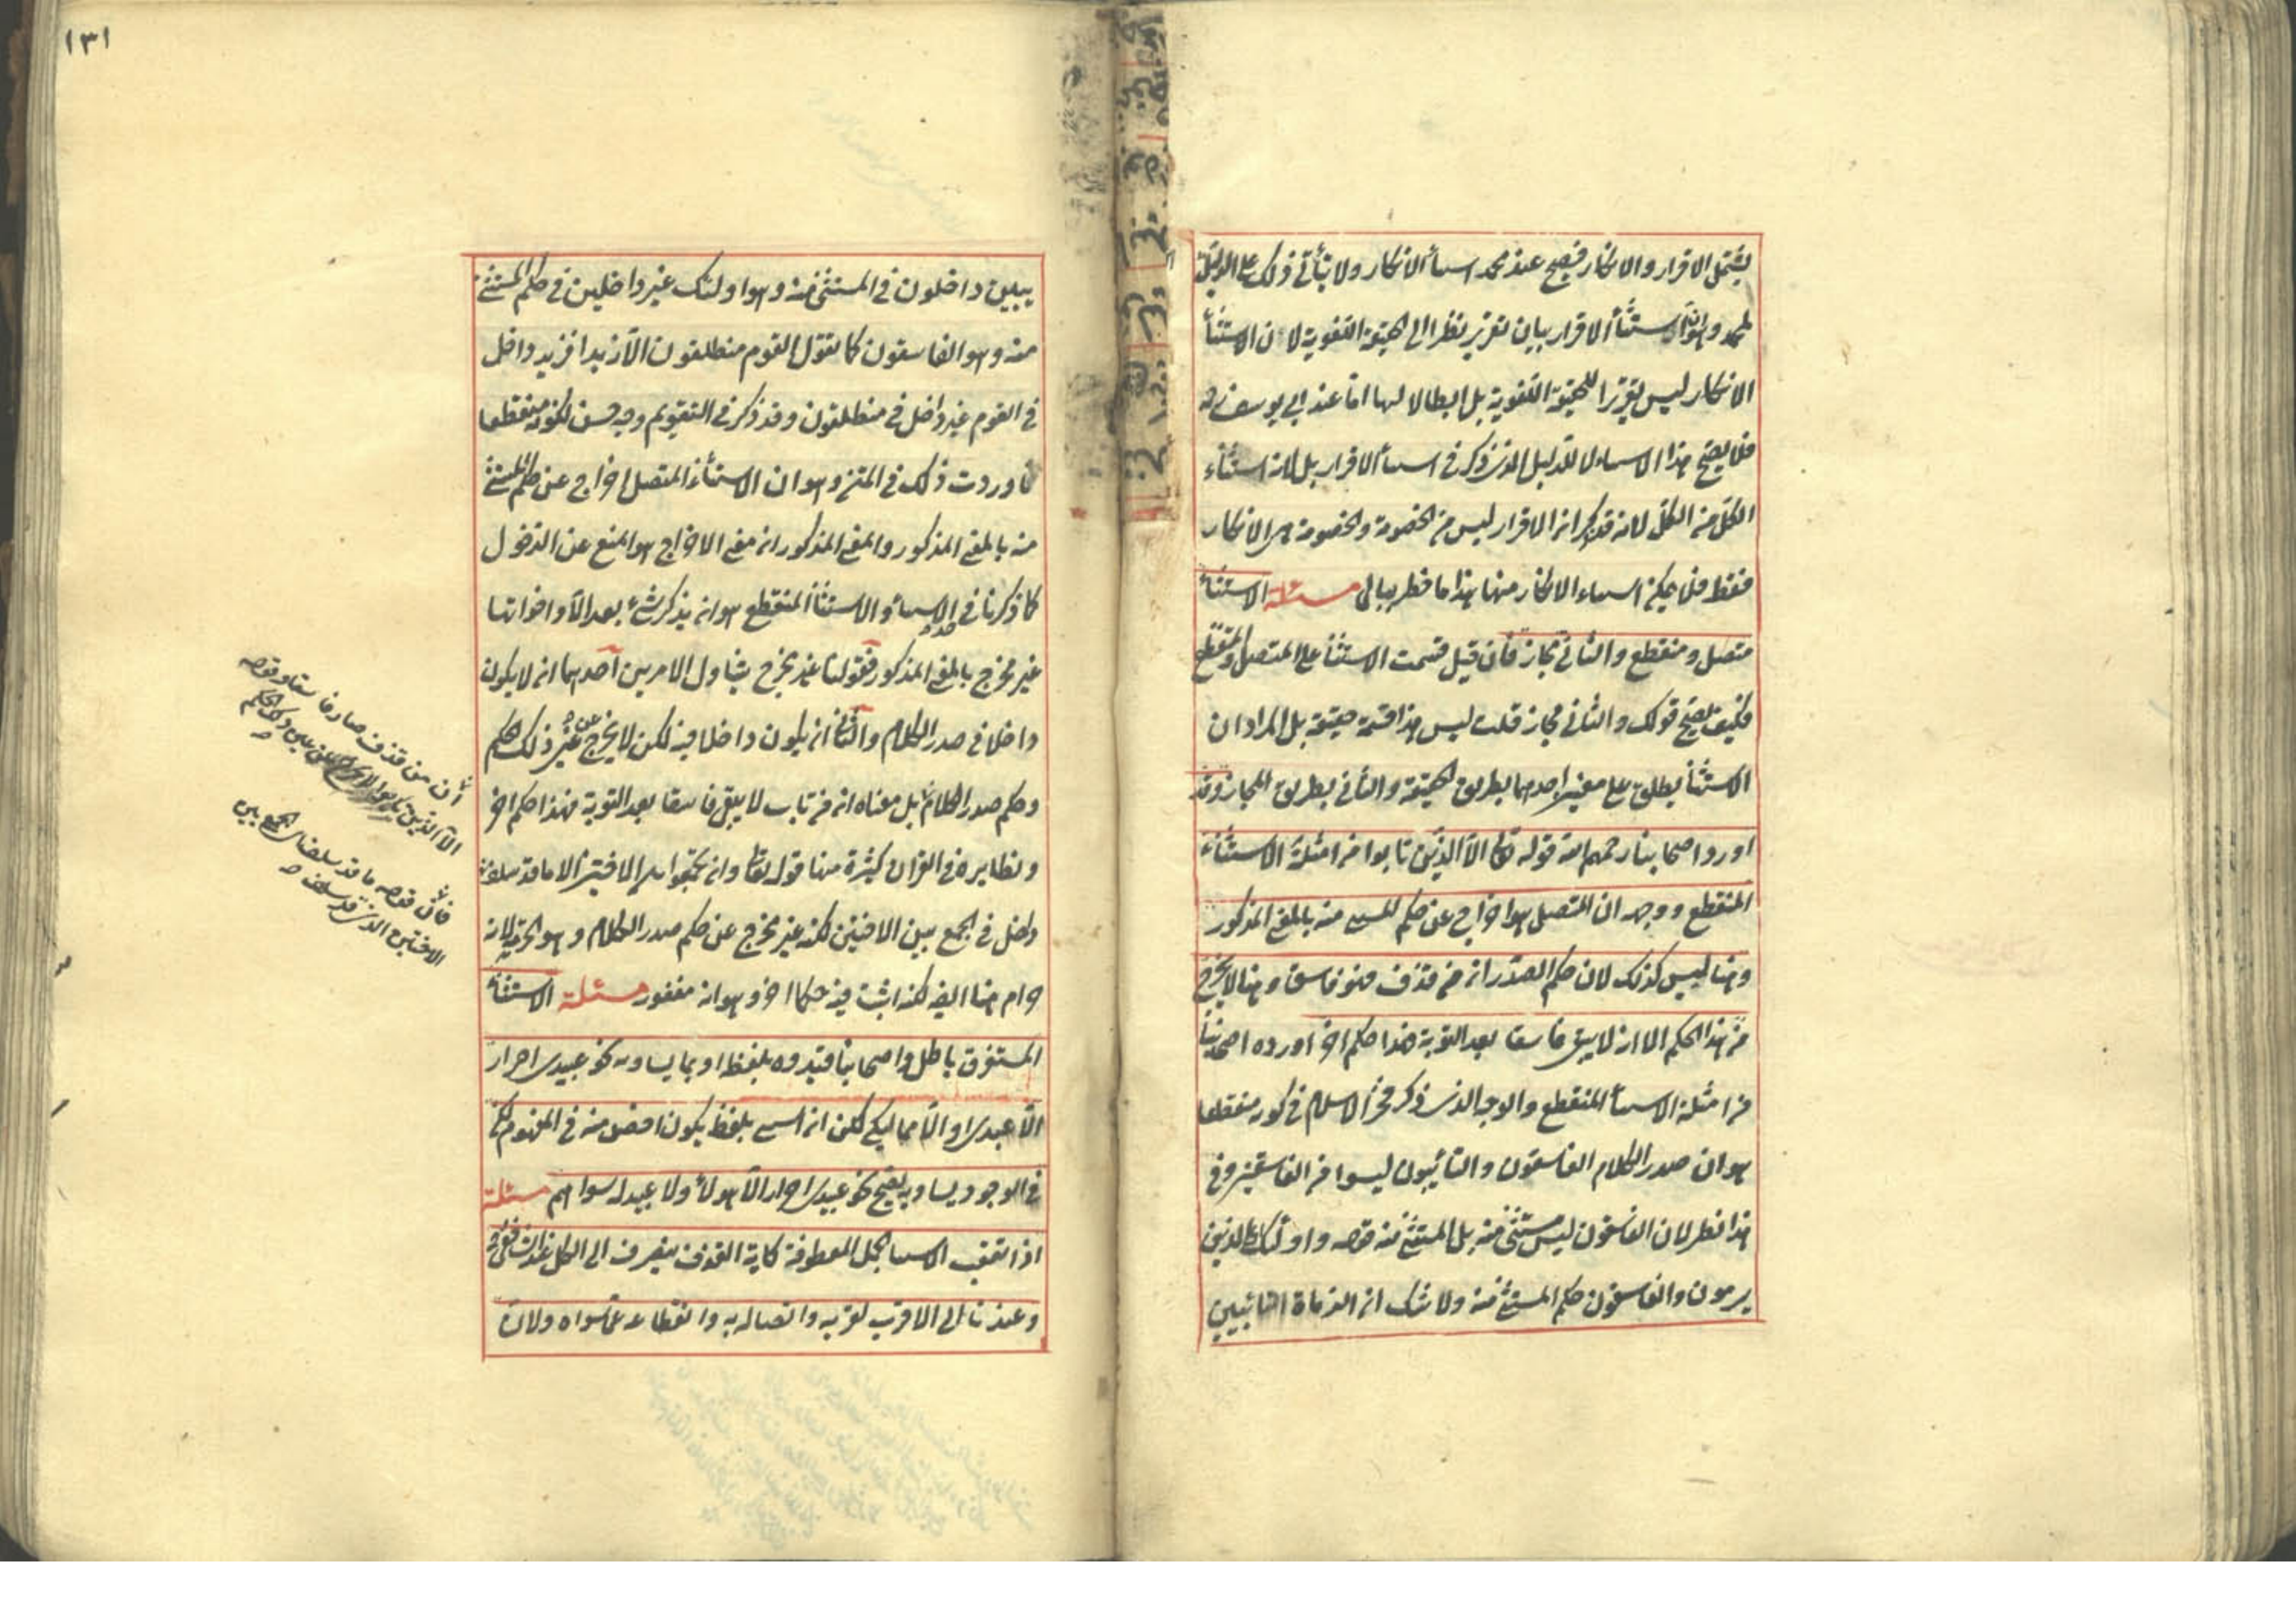 يشمل الاقرار والانكار فيصح عند محمد استثناء الانكار ولا يتأتى ذلك على الدليل
لمحمد وهو ان استثناء الاقرار بيان تقرير نظرا الى الحقيقة اللغوية لان استثناء
الانكار ليس تقريرا للحقيقة اللغوية بل ابطالا لها اما عند ابي يوسف رح
فلا يصح هذا الاستثناء لا للدليل الذي ذكر في استثناء الاقرار بل لانه استثناء
الكل من الكل لانه قد ذكر ان الاقرار ليس من الخصومة والخصومة هي الانكار
فقط فلا يمكن استثناء الانكار منها هذا ما خطر ببالى مسئلة الاستثناء
متصل ومنقطع والثاني مجاز فان قيل قسمت الاستثناء على المتصل والمنقطع
فكيف يصح قولك والثاني مجاز قلت ليس هذا قسمة حقيقة بل المراد ان
الاستثناء يطلق على معنيين احدهما بطريق الحقيقة والثاني بطريق المجاز وقد
اورد اصحابنا رحمهم الله قوله تعالى الا الذين تابوا من امثلة الاستثناء
المنقطع ووجهه ان المتصل هو اخراج عن حكم المستثنى منه بالمعنى المذكور
وهنا ليس كذلك لان حكم الصدر ان من قذف فهو فاسق وهنا لا يخرج
من هذا الحكم الا انه لا يبقى فاسقا بعد التوبة هذا حكم اخر اورده اصحابنا
من امثلة الاستثناء المنقطع والوجه الذي ذكر فخر الاسلام في كونه منقطعا
هو ان صدر الكلام الفاسقون والتائبون ليسوا من الفاسقين وفى
هذا نظر لان الفاسقون ليس مستثنى منه بل المستثنى منه قوله واولئك اي الذين
يرمون والفاسقون حكم المستثنى منه ولا شك ان الرماة التائبين
١٣١
يبين داخلون في المستثنى منه وهو اولئك غير داخلين في حكم المستثنى
منه وهو الفاسقون كما تقول القوم منطلقون الا زيدا فزيد داخل
في القوم غير داخل في منطلقون وقد ذكر في التقويم وجه حسن لكونه منقطعا
فاوردت ذلك في المتن وهو ان الاستثناء المتصل اخراج عن حكم المستثنى
منه بالمعنى المذكور والمعنى المذكور ان معنى الاخراج هو المنع عن الدخول
كما ذكرنا في حد الاستثناء والاستثناء المنقطع هو ان يذكر شئ بعد الا واخواتها
غير مخرج بالمعنى المذكور فقولنا غير مخرج يتناول الامرين احدهما ان لا يكون
داخلا في صدر الكلام والثاني ان يكون داخلا فيه لكن لا يخرج عن عين ذلك الحكم
وحكم صدر الكلام بل معناه ان من تاب لا يبقى فاسقا بعد التوبة فهذا حكم اخر
ونظايره في القران كثيرة منها قوله تعالى وان تجمعوا بين الاختين الا ما قد سلف
داخل في الجمع بين الاختين لكنه غير مخرج عن حكم صدر الكلام وهو الحرمة لانه
حرام هنا ايضا لكنه اثبت فيه حكما اخر وهو انه مغفور مسئلة الاستثناء
المستغرق باطل واصحابنا قيدوه بلفظه او بما يساويه نحو عبيدي احرار
الا عبيدي او الا مماليكي لكن ان استثنى بلفظ يكون اخص منه في المفهوم لكن
في الوجود يساويه يصح نحو عبيدي احرار الا هؤلاء ولا عبيد له سواهم مسئلة
اذا تعقب الاستثناء الجمل المعطوفة كاية القذف ينصرف الى الكل عند الشافعي رح
وعندنا الى الاقرب لقربه واتصاله به وانقطاعه عما سواه ولان
اى ان من قذف صار فاسقا وقوله
الا الذين تابوا لا يخرج عن عين ذلك الحكم
فان قوله ما قد سلف اى الجمع بين
الاختين الذى قد سلف